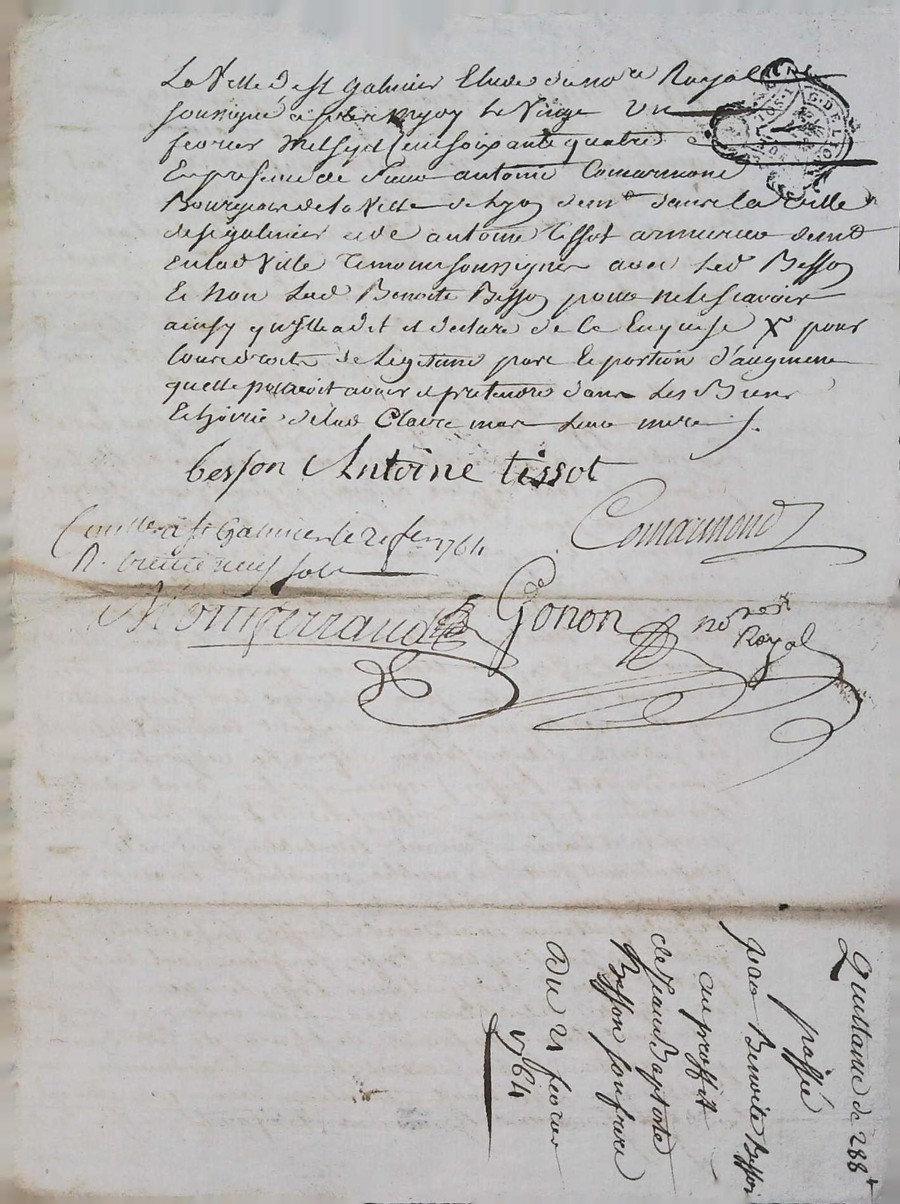 La Ville de st galmier Etude du no.re Royal
soussigné après mydy le Vingt Un
fevrier mil sept cent soixante quatre
En presence de sieur antoine Comarmond
Bourgeois de la Ville de Lyon dem.t dans la ville
de st galmier et de antoine Tissot armurier dem.t
en lad Ville Temoins soussignes avec led Besson
Et Non lad Benoite Besson pour ne le scavoir
ainsy qu'Elle a dit et declaré de ce Enquise X.e pour
de Legitime part et portion d'augment
quelle pourroit avoir et pretendre dans Les Biens
Et hoirie de lad Claire mere
besson Antoine tissot
Comarmond
a st Galmier le 21 fev.er 1764
R. trente neuf sols
Montferrand
Gonon no.re
Royal
G. DE LYON
Quittance de 288
passée
par Benoite Besson
au proffit
de Jean Baptiste
Besson son frere
Du 21 fevrier
1764